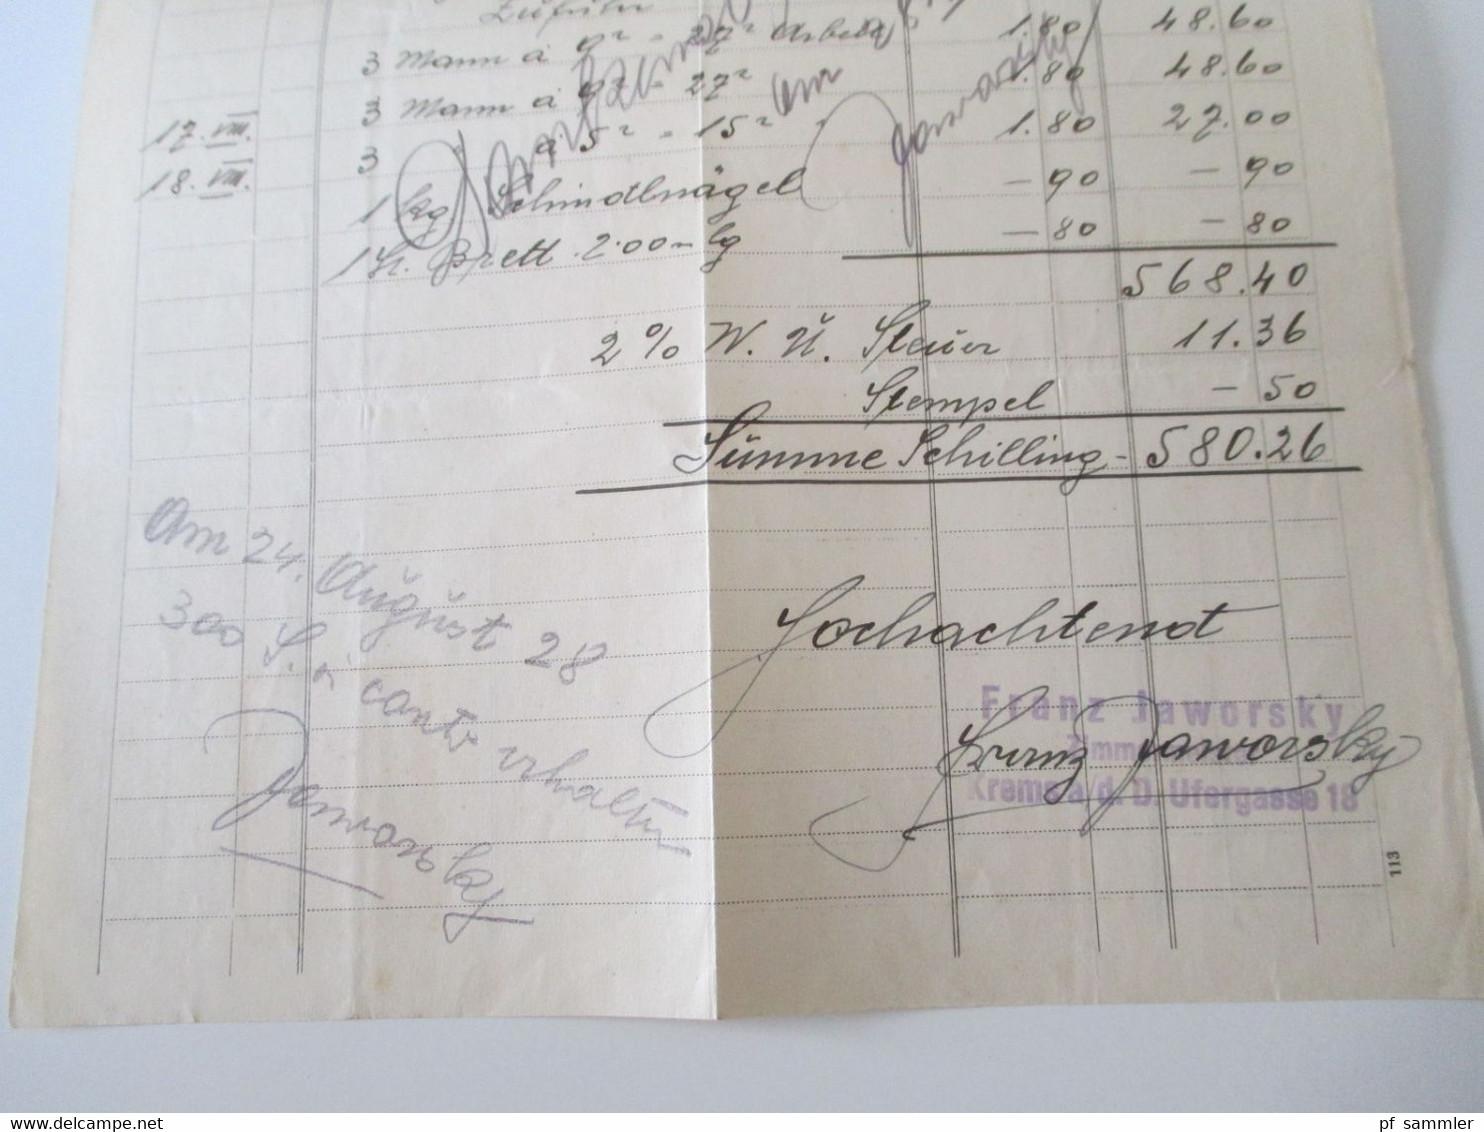 Zufuhr
3 Mann à 9ʳ = 27ʳ Arbeit 1.80 48.60
17. VIII. 3 Mann à 9ʳ = 27ʳ 1.80 48.60
18. VIII. 3 " à 5ʳ = 15ʳ " 1.80 27.00
1 kg Schindlnägel – 90 – 90
1 St. Brett 2.00 m lg – 80 – 80
am
Jaworsky
568.40
2% W. U. Steuer 11.36
Stempel – 50
Summe Schilling – 580.26
Am 24. August 28
300 S. à conto erhalten
Jaworsky
Hochachtend
Franz Jaworsky
Franz Jaworsky
Krems a/d. D. Ufergasse 18
113
www.delcampe.net
pf_sammler